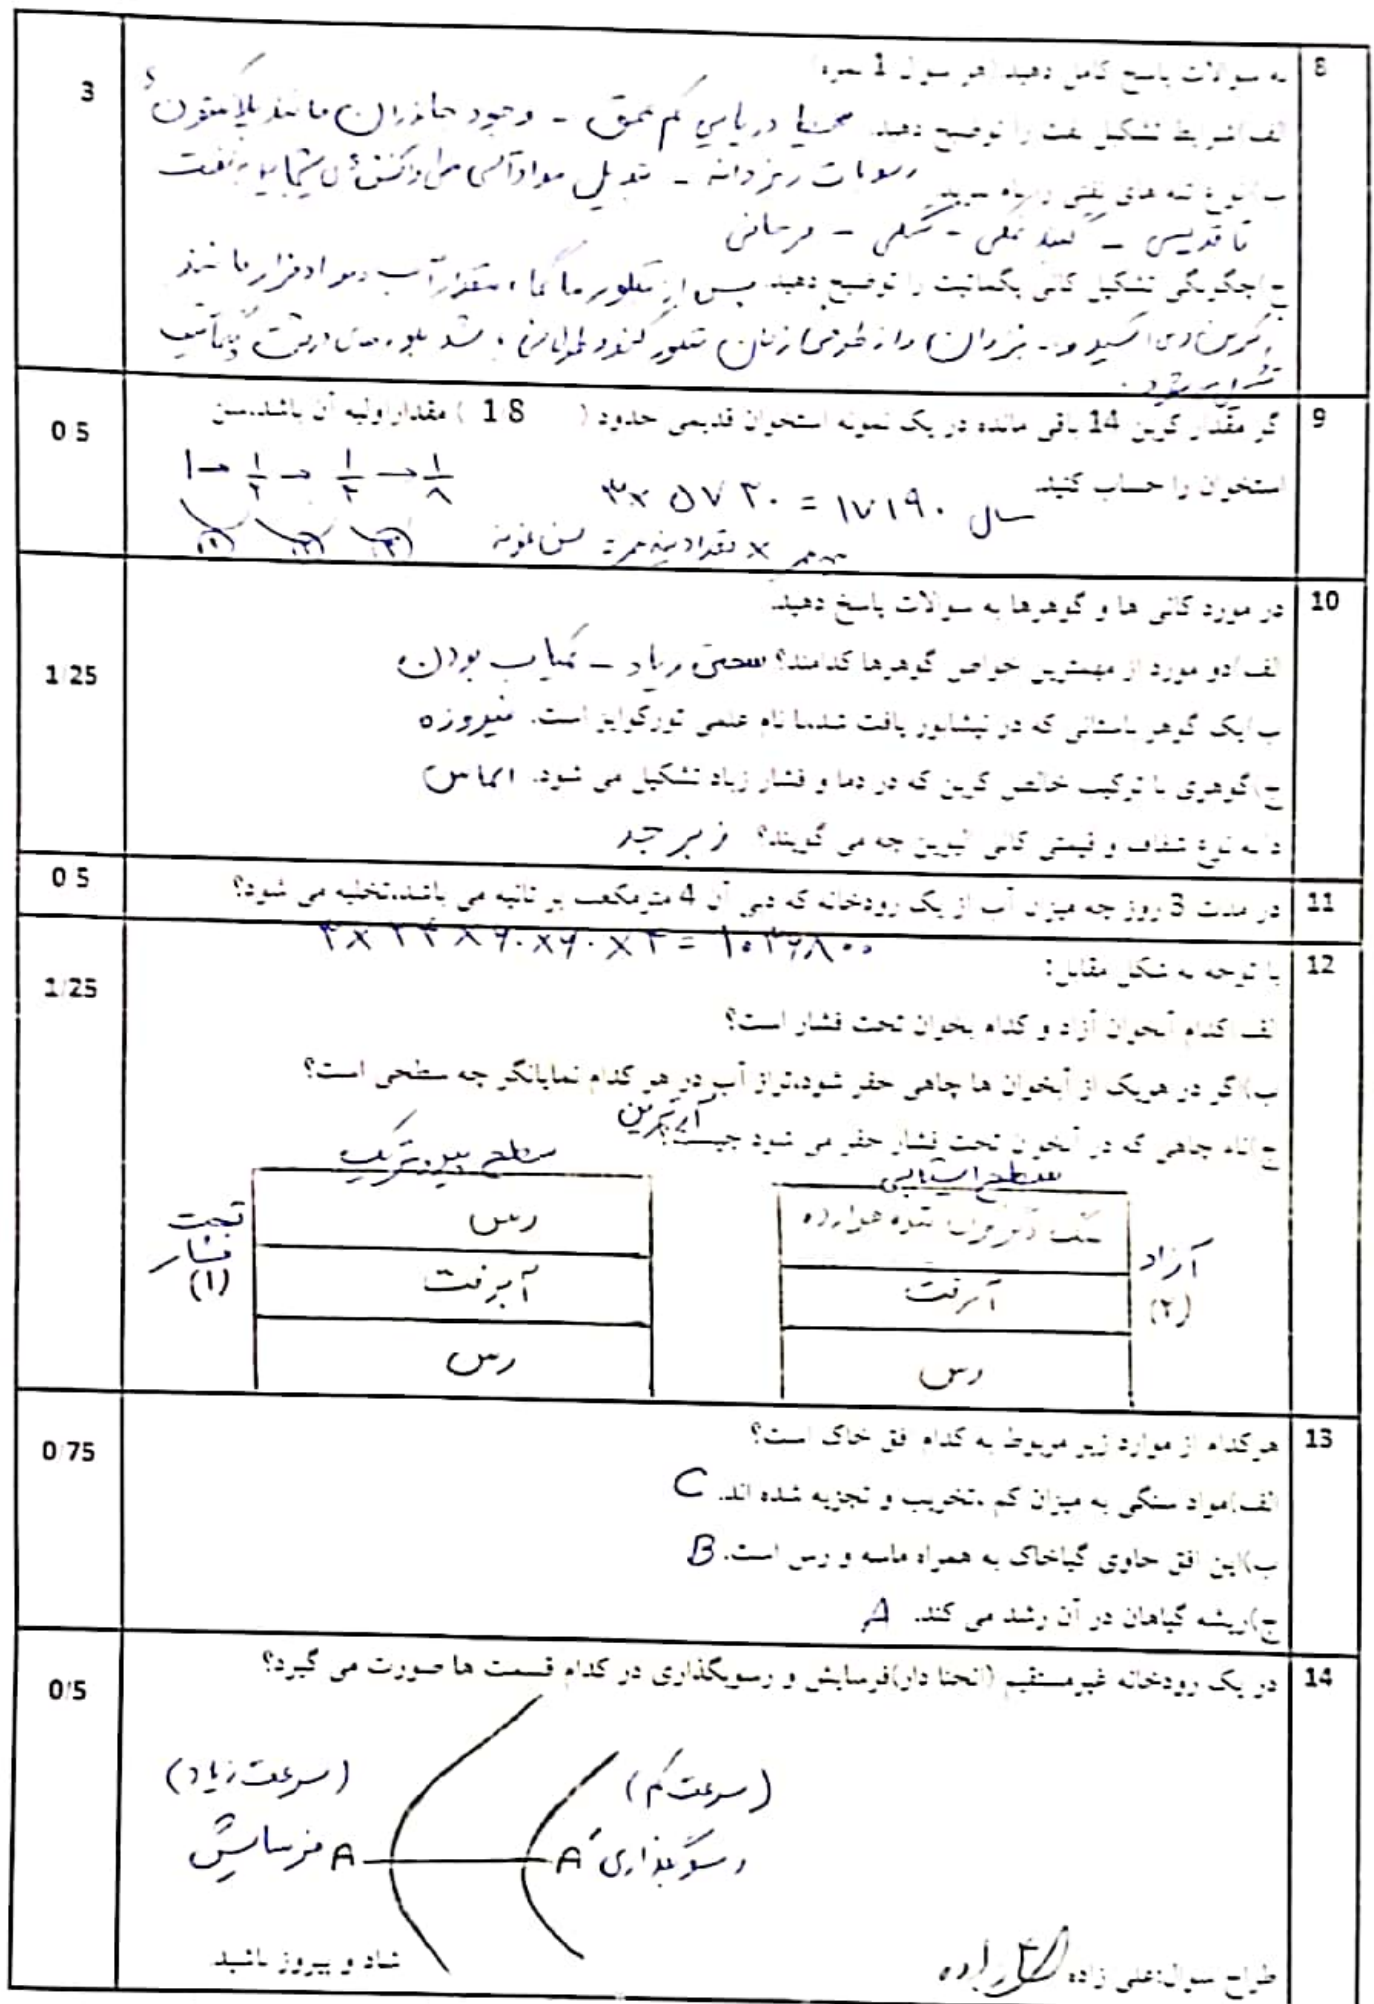 8
3
به سوالات پاسخ کامل دهید (هر سوال 1 نمره)
الف)شرایط تشکیل نفت را توضیح دهید. محیط دریایی کم عمق - وجود جانداران مانند پلانکتون
رسوبات ریزدانه - تبدیل مواد آلی طی واکنش های شیمیایی به نفت
ب)نوع تله های نفتی را نام ببرید.
تاقدیسی - گنبد نمکی - گسلی - مرجانی
ج)چگونگی تشکیل کانی پگماتیت را توضیح دهید. پس از تبلور ماگما، مقدار آب و مواد فرار مانند
کربن دی اکسید و.. فراوان و از طرفی زمان تبلور کند و طولانی باشد بلورهای درشت پگماتیت
تشکیل می شود.
9
0/5
گر مقدار کربن 14 باقی مانده در یک نمونه استخوان قدیمی حدود ( 1/8 ) مقداراولیه آن باشد.سن
استخوان را حساب کنید.
۳×۵۷۳۰ = ۱۷۱۹۰ سال
۱ → ۱/۲ → ۱/۴ → ۱/۸
(۱) (۲) (۳)
نیم عمر × تعداد نیم عمر = سن نمونه
10
1/25
در مورد کانی ها و گوهرها به سوالات پاسخ دهید.
الف)دو مورد از مهمترین خواص گوهرها کدامند؟ سختی زیاد - کمیاب بودن
ب)یک گوهر باستانی که در نیشابور یافت شد.با نام علمی تورکوایز است. فیروزه
ج)گوهری با ترکیب خالص کربن که در دما و فشار زیاد تشکیل می شود. الماس
د)به نوع شفاف و قیمتی کانی الیوین چه می گویند؟ زبرجد
11
0/5
در مدت 3 روز چه میزان آب از یک رودخانه که دبی آن 4 مترمکعب بر ثانیه می باشد.تخلیه می شود؟
۳×۲۴×۶۰×۶۰×۴ = ۱۰۳۶۸۰۰
12
1/25
با توجه به شکل مقابل:
الف)کدام آبخوان آزاد و کدام بخوان تحت فشار است؟
ب)اگر در هریک از آبخوان ها چاهی حفر شود.تراز آب در هر کدام نمایانگر چه سطحی است؟
ج)نام چاهی که در آبخون تحت فشار حفر می شود چیست؟ آرتزین
سطح پیزومتریک
سطح ایستابی
تحت فشار (۱)
رس
آبرفت
رس
آزاد (۲)
آبرفت
رس
13
0/75
هرکدام از موارد زیر مربوط به کدام افق خاک است؟
الف)مواد سنگی به میزان کم ،تخریب و تجزیه شده اند. C
ب)این افق حاوی گیاخاک به همراه ماسه و رس است. B
ج)ریشه گیاهان در آن رشد می کند. A
14
0/5
در یک رودخانه غیرمستقیم (انحنا دار)فرسایش و رسوبگذاری در کدام قسمت ها صورت می گیرد؟
(سرعت کم)
(سرعت زیاد)
رسوبگذاری A'
فرسایش A
طراح سوال:علی زاده
شاد و پیروز باشید